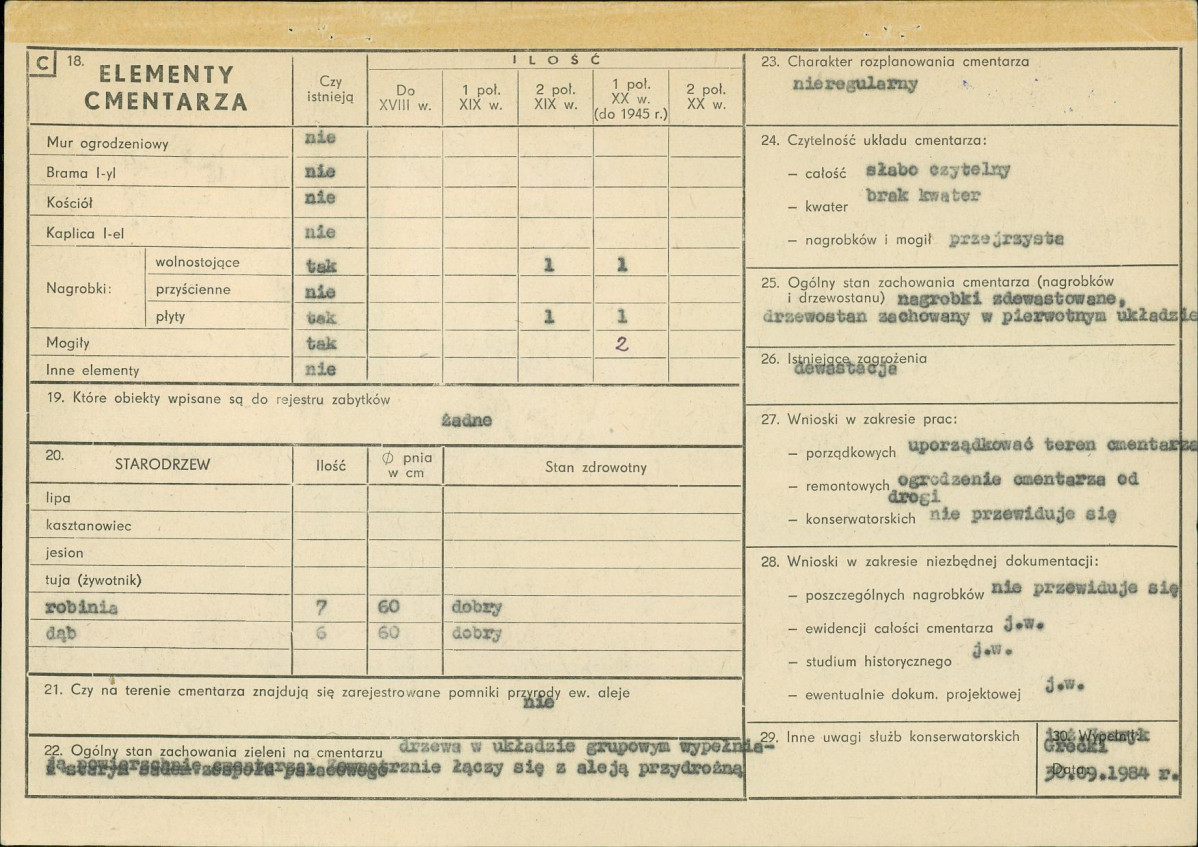 C 18. ELEMENTY CMENTARZA
Czy istnieją
I L O Ś Ć
Do XVIII w.
1 poł. XIX w.
2 poł. XIX w.
1 poł. XX w. (do 1945 r.)
2 poł. XX w.
Mur ogrodzeniowy nie
Brama I-yl nie
Kościół nie
Kaplica I-el nie
Nagrobki:
wolnostojące tak 1 1
przyścienne nie
płyty tak 1 1
Mogiły tak 2
Inne elementy nie
19. Które obiekty wpisane są do rejestru zabytków
żadne
20. STARODRZEW Ilość Ø pnia w cm Stan zdrowotny
lipa
kasztanowiec
jesion
tuja (żywotnik)
robinia 7 60 dobry
dąb 6 60 dobry
21. Czy na terenie cmentarza znajdują się zarejestrowane pomniki przyrody ew. aleje
nie
22. Ogólny stan zachowania zieleni na cmentarzu drzewa w układzie grupowym wypełnia-
ją powierzchnię cmentarza. Zewnętrznie łączy się z aleją przydrożną
z starym sadem zespołu pałacowego
23. Charakter rozplanowania cmentarza
nieregularny
24. Czytelność układu cmentarza:
– całość słabo czytelny
– kwater brak kwater
– nagrobków i mogił przejrzyste
25. Ogólny stan zachowania cmentarza (nagrobków
i drzewostanu) nagrobki zdewastowane,
drzewostan zachowany w pierwotnym układzie
26. Istniejące zagrożenia
dewastacja
27. Wnioski w zakresie prac:
– porządkowych uporządkować teren cmentarza
– remontowych ogrodzenie cmentarza od
drogi
– konserwatorskich nie przewiduje się
28. Wnioski w zakresie niezbędnej dokumentacji:
– poszczególnych nagrobków nie przewiduje się
– ewidencji całości cmentarza j.w.
– studium historycznego j.w.
– ewentualnie dokum. projektowej j.w.
29. Inne uwagi służb konserwatorskich
30. Wypełnił:
Grecki
Data:
30.09.1984 r.